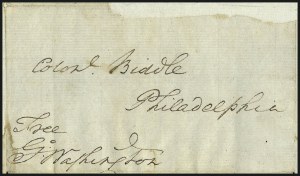 Colonl. Biddle
Philadelphia
Free
Go Washington